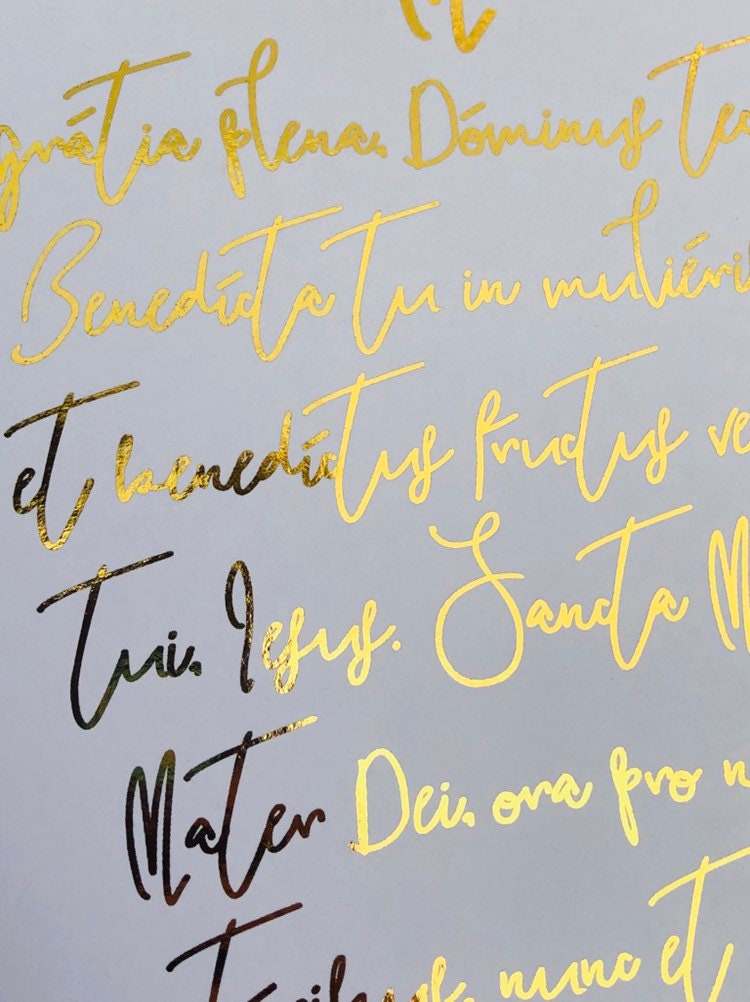 grátia plena, Dóminus te
Benedícta tu in muliéri
et benedíctus fructus ve
tui, Iesus. Sancta M
Mater Dei, ora pro n
nunc et